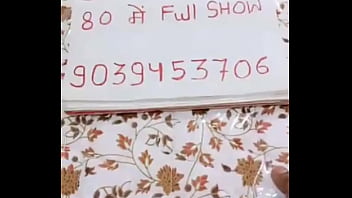 80 में Full SHOW
9039453706